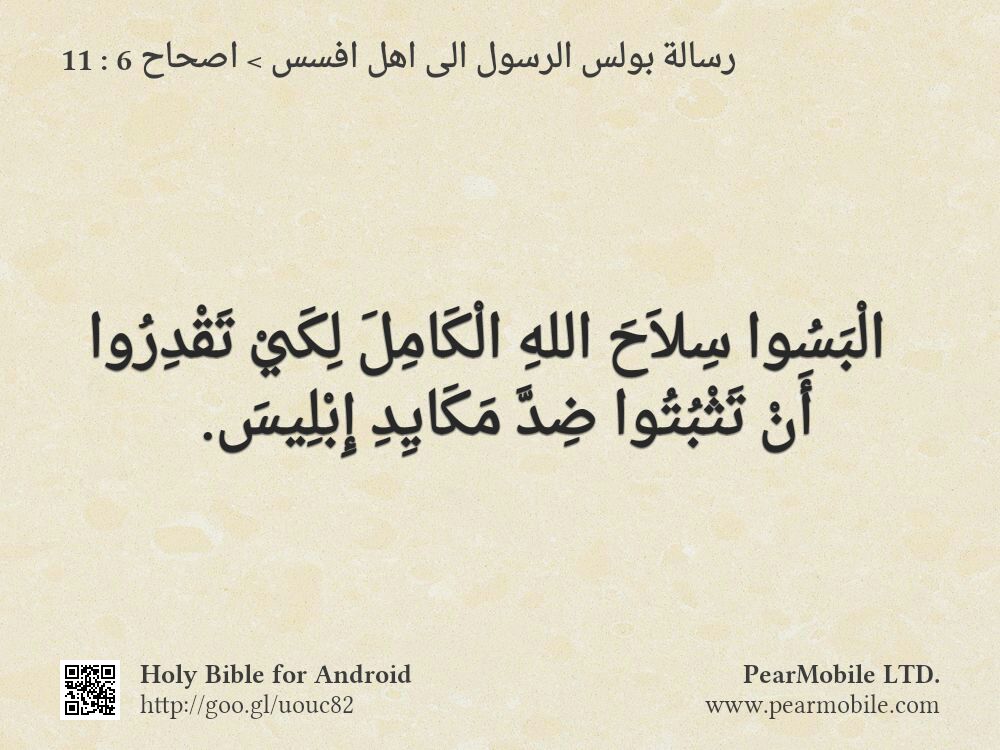 رسالة بولس الرسول الى اهل افسس > اصحاح 6 : 11
الْبَسُوا سِلاَحَ اللهِ الْكَامِلَ لِكَيْ تَقْدِرُوا
أَنْ تَثْبُتُوا ضِدَّ مَكَايِدِ إِبْلِيسَ.
Holy Bible for Android
http://goo.gl/uouc82
PearMobile LTD.
www.pearmobile.com